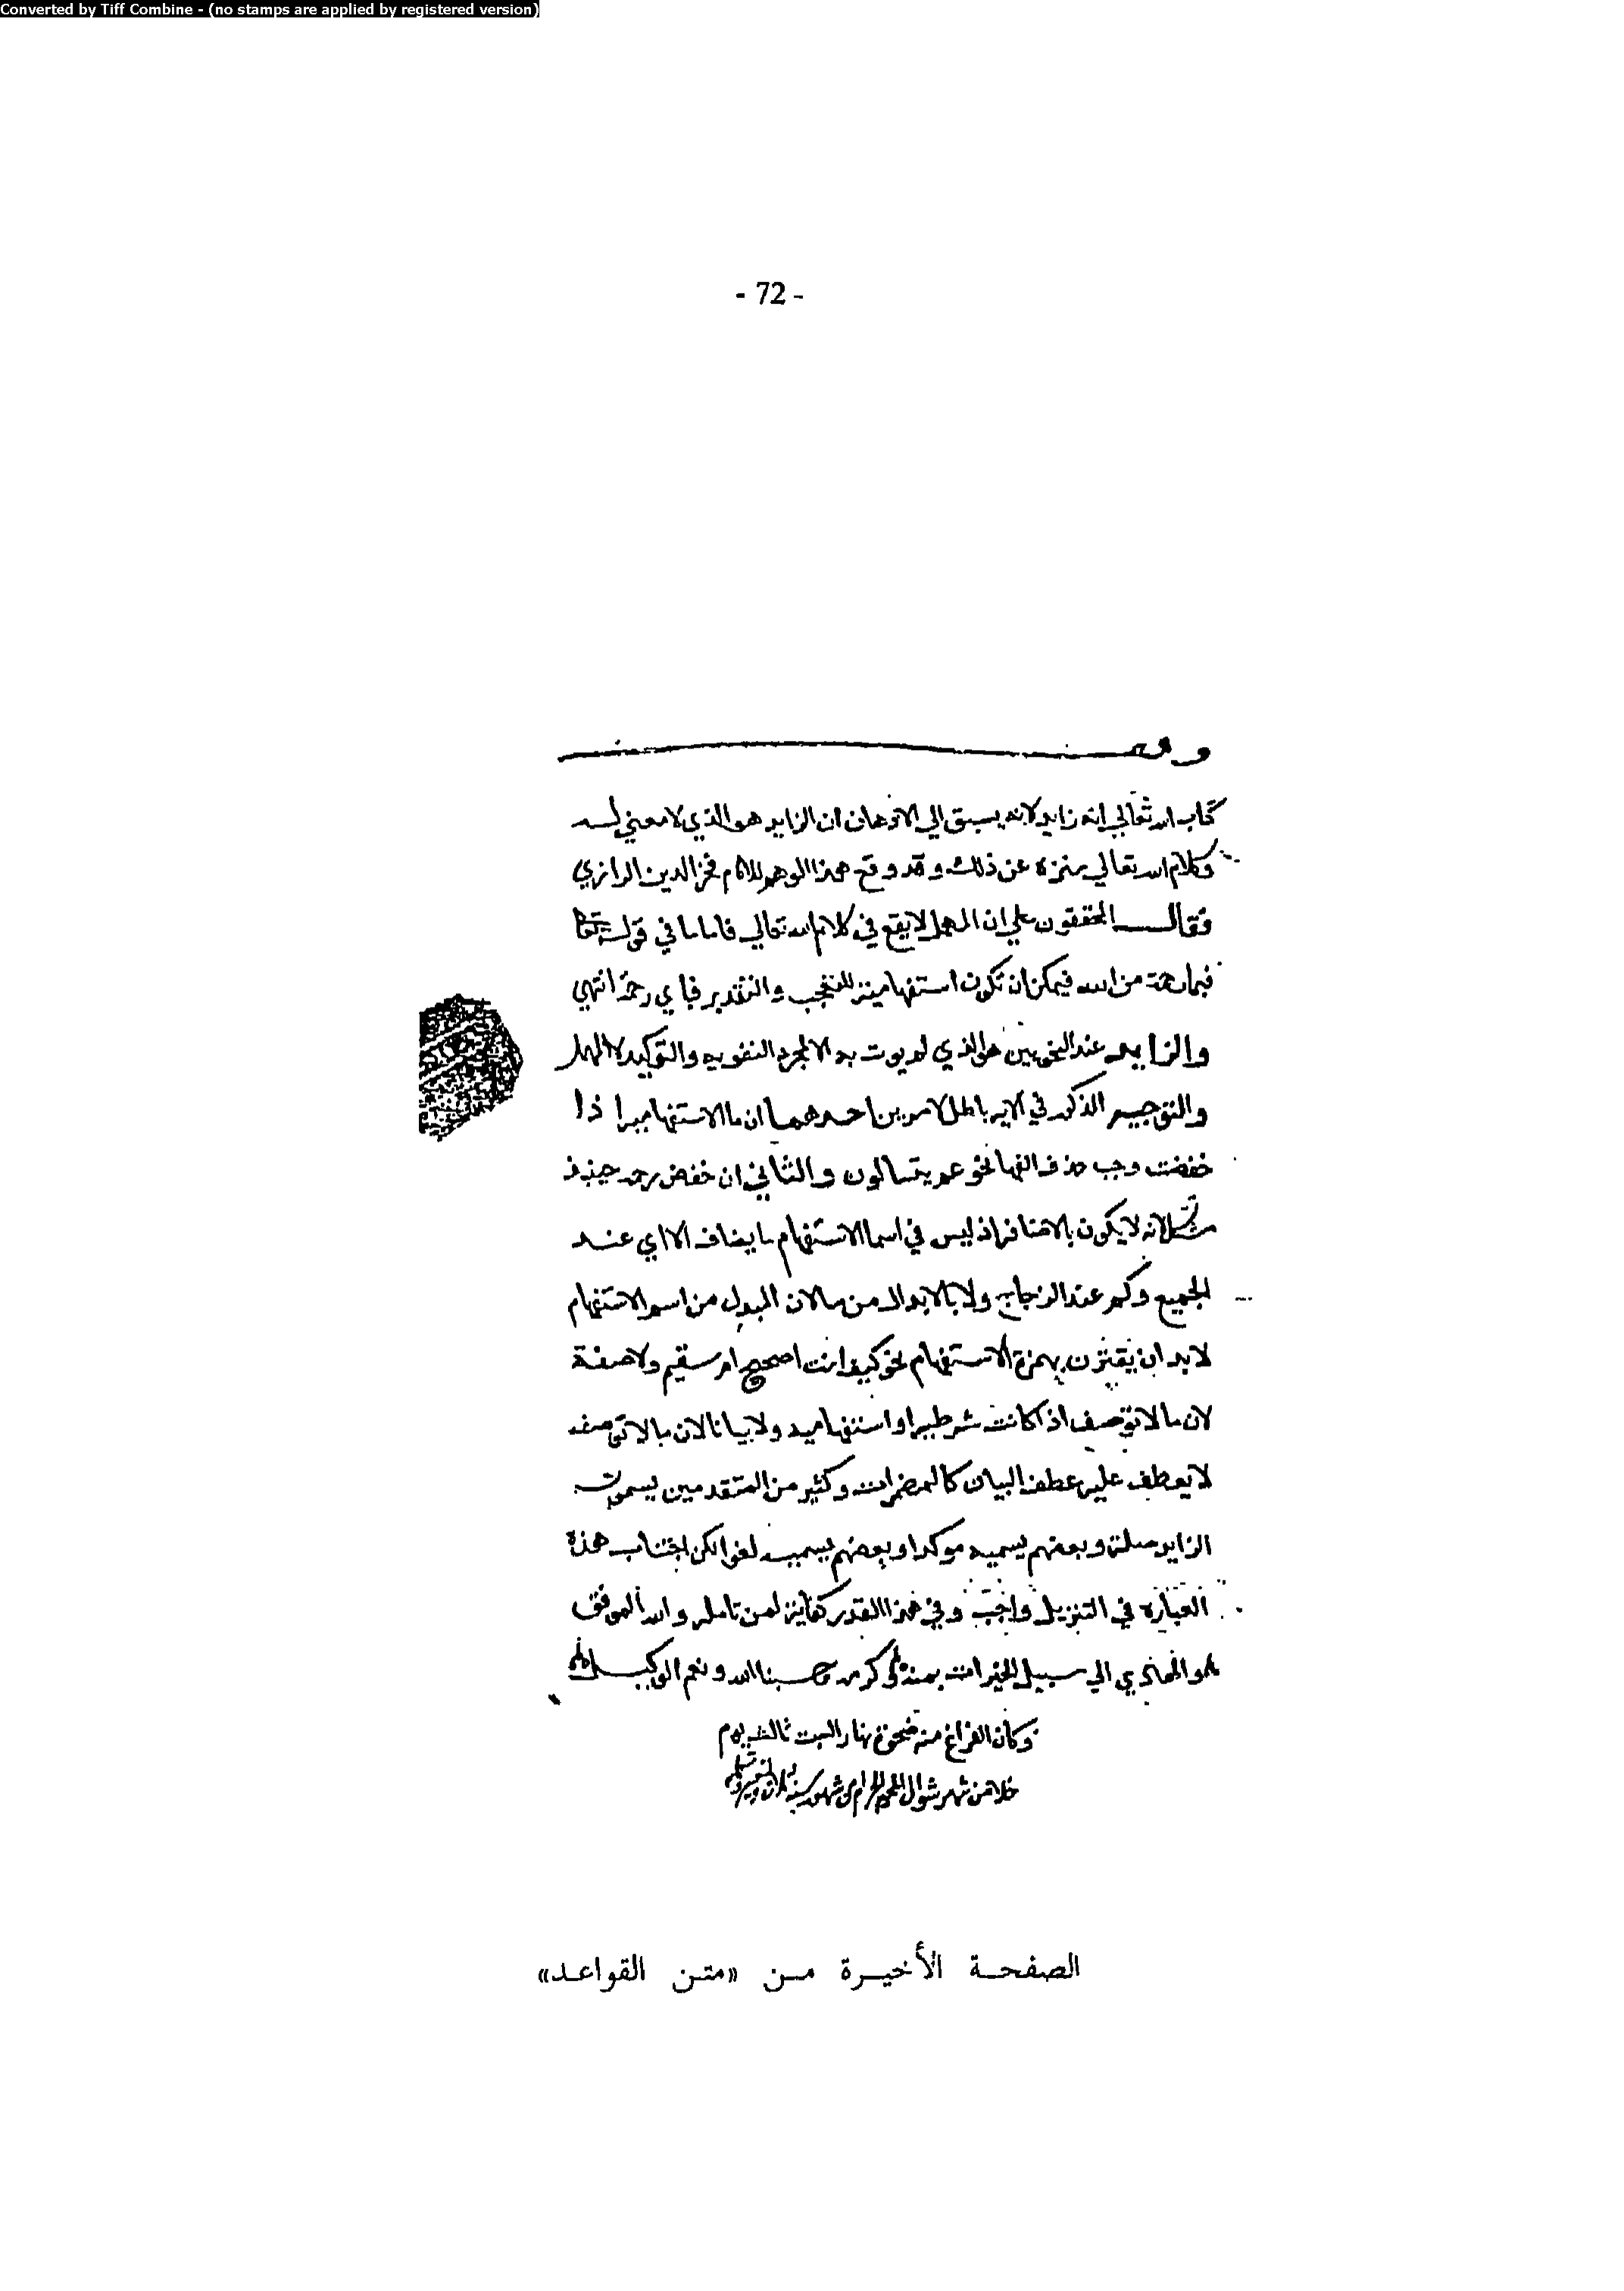 Converted by Tiff Combine - (no stamps are applied by registered version)
- 72 -
كتاب الله تعالي انه زايد لانه يسبق الي الاذهان ان الزايد هو الذي لا معني له
وكلام الله تعالي منزه عن ذلك وقد وقع هذا الوهم للامام فخر الدين الرازي
فقال المحققون علي ان المهمل لا يقع في كلام الله تعالي فاما ما في قوله تعالي
فبما رحمة من الله فيمكن ان تكون استفهامية للتعجب والتقدير فباي رحمة انتهي
والزايد عند النحويين هو الذي لم يوت به الا لمجرد التقويه والتوكيد لا المهمل
والتوجيه المذكور في الايه باطل لامرين احدهما ان ما الاستفهاميه اذا
خفضت وجب حذف الفها نحو عم يتسالون والثاني ان خفض رحمه حينيذ
مشكل لانه لا يكون بالاضافه اذ ليس في اسما الاستفهام ما يضاف الا اي عند
الجميع وكم عند الزجاج ولا بالابدال من ما لان المبدل من اسم الاستفهام
لا بد ان يقترن بهمزة الاستفهام نحو كيف انت اصحيح ام سقيم ولا صفة
لان ما لا توصف اذا كانت شرطيه او استفهاميه ولا بيانا لان ما لا توصف
لا يعطف عليه عطف البيان كالمضمرات وكثير من المتقدمين يسمون
الزايد صلة وبعضهم يسميه موكدا وبعضهم يسميه لغوا لكن اجتناب هذه
العبارة في التنزيل واجب وفي هذا القدر كفاية لمن تامله والله الموفق
هو الهادي الي سبيل الخيرات بمنه وكرمه حسبنا الله ونعم الوكيل
وكان الفراغ منه ضحوة نهار السبت ثالث يوم
خلا من شهر شوال
الصفحة الأخيرة من «متن القواعد»